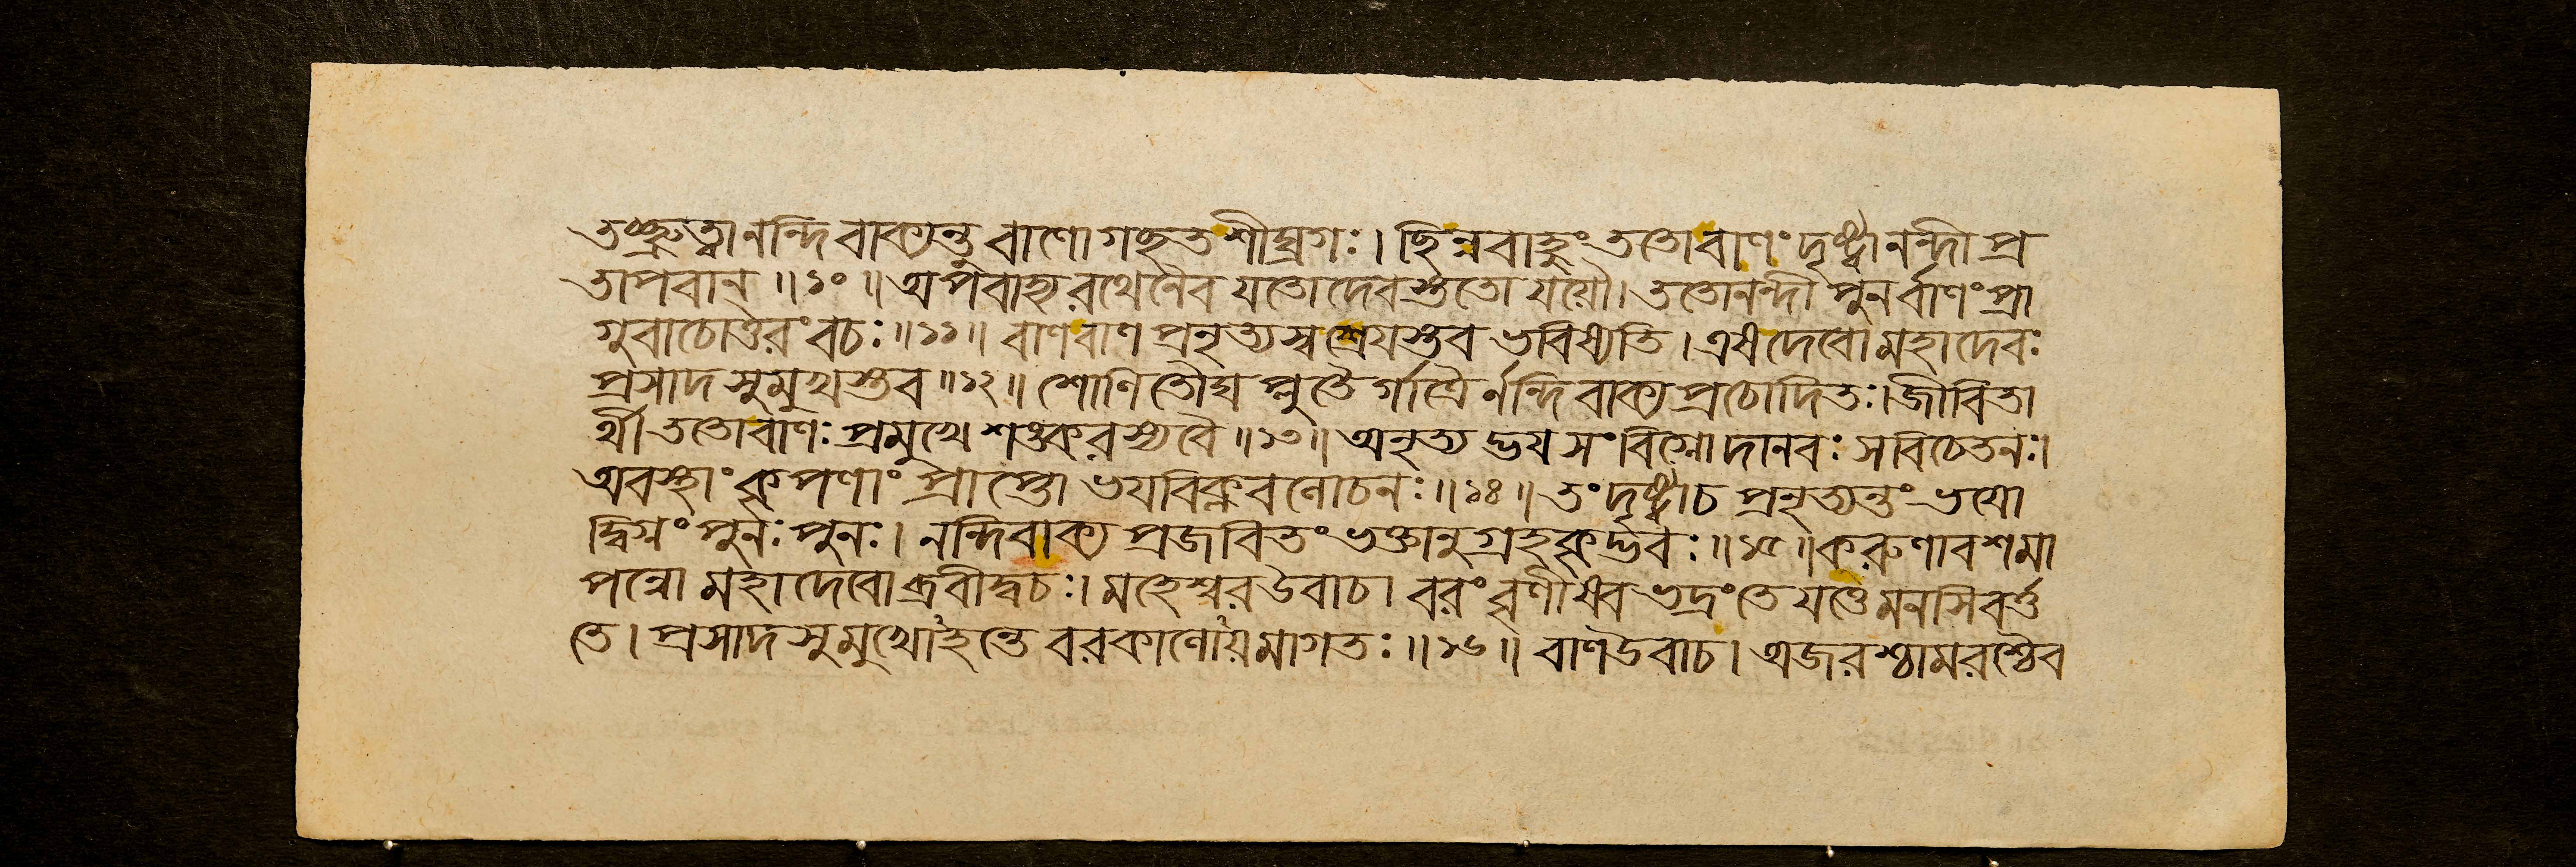 তচ্ছ্রুত্বানন্দিবাক্যন্তু বাণোগচ্ছত শীঘ্রগঃ। ছিন্নবাহুং ততোবাণং দৃষ্ট্বানন্দী প্র
তাপবান্ ॥১০॥ অপবাহ্য রথেনৈব যতোদেবস্ততো যযৌ। ততোনন্দী পুনর্বাণং প্রা
গুবাচোত্তরং বচঃ॥১১॥ বাণবাণ প্রনৃত্যস্ব শ্রেযস্তব ভবিষ্যতি। এষদেবোমহাদেবঃ
প্রসাদ সুমুখস্তব॥১২॥ শোণিতৌঘ প্লুতৈর্গাত্রৈর্নন্দিবাক্য প্রচোদিতঃ। জীবিতা
র্থী ততোবাণঃ প্রমুখে শঙ্করস্যবৈ॥১৩॥ অনৃত্য দ্ভয সংবিগ্নোদানবঃ সবিচেতনঃ।
অবস্থাং কৃপণাং প্রাপ্তো ভযবিক্লবলোচনঃ॥১৪॥ তং দৃষ্ট্বাচ প্রনৃত্যন্তং ভযো
দ্বিগ্নং পুনঃপুনঃ। নন্দিবাক্য প্রজবিতং ভক্তানুগ্রহকৃদ্ভবঃ॥১৫॥ করুণাবশমা
পন্নো মহাদেবোব্রবীদ্বচঃ। মহেশ্বর উবাচ। বরং বৃণীষ্ব ভদ্রংতে যত্তেমনসিবর্ত্ত
তে। প্রসাদসুমুখোঽহন্তে বরকালোঽযমাগতঃ॥১৬॥ বাণউবাচ। অজরশ্চামরশ্চৈব